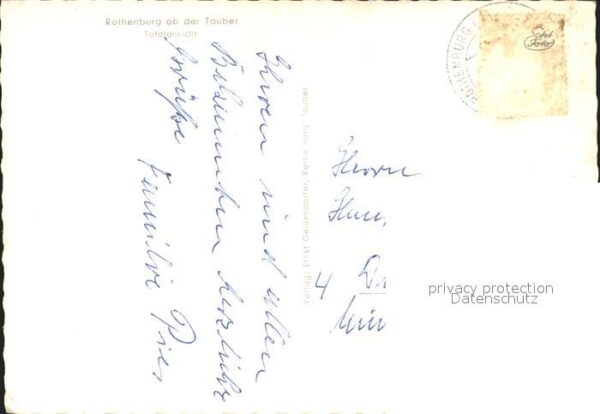 Rothenburg ob der Tauber
Totalansicht
Ihnen und allen
Bekannten herzliche
Grüße Familie Pies,
Verlag: Ernst Geißendörfer, Rothenburg Tauber
ROTHENBURG
Echt
Foto
Herrn
4
privacy protection
Datenschutz